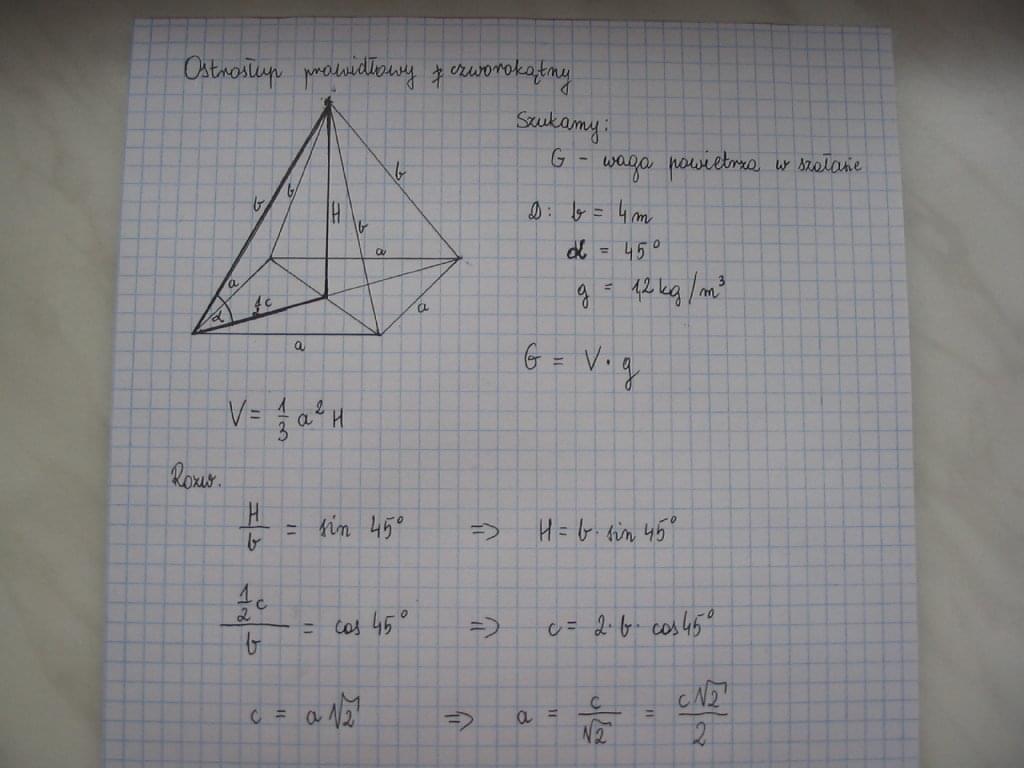 Ostrosłup prawidłowy czworokątny
b
b
b
H
b
a
a
½ c
α
a
a
Szukamy:
G - waga powietrza w szałasie
D: b = 4m
α = 45°
g = 1,2 kg/m³
G = V · g
V = 1/3 a² H
Rozw.
H/b = sin 45° => H = b · sin 45°
(1/2 c)/b = cos 45° => c = 2 · b · cos 45°
c = a √2 => a = c/√2 = c√2/2